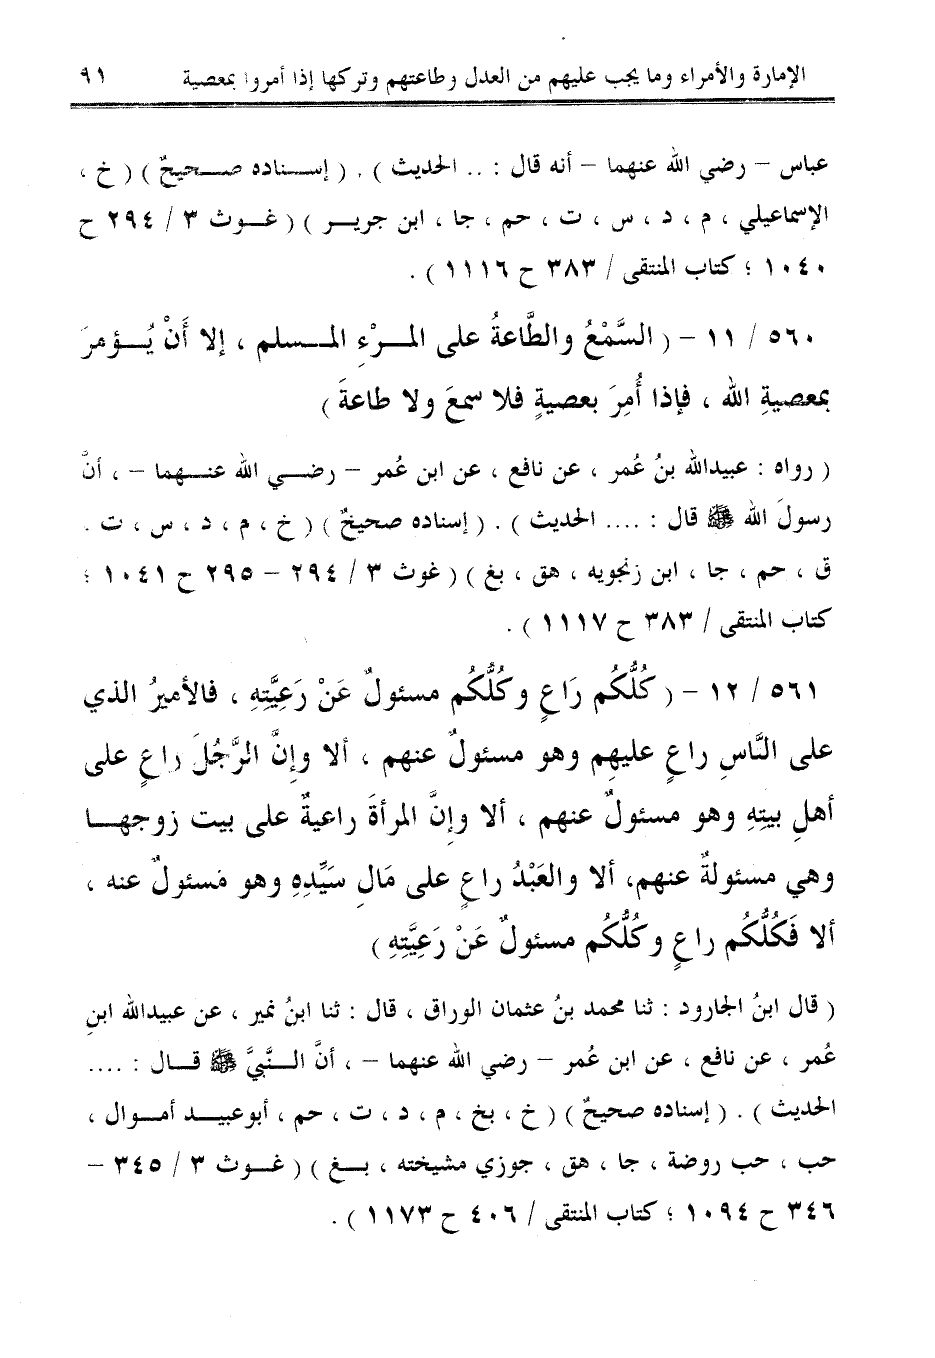 الإمارة والأمراء وما يجب عليهم من العدل وطاعتهم وتركها إذا أمروا بمعصية ٩١
عباس – رضي الله عنهما – أنه قال : .. الحديث ) . ( إسناده صحيحٌ ) ( خ ،
الإسماعيلي ، م ، د ، س ، ت ، حم ، جا ، ابن جرير ) ( غوث ٣ / ٢٩٤ ح
١٠٤٠ ؛ كتاب المنتقى / ٣٨٣ ح ١١١٦ ) .
٥٦٠ / ١١ – ( السَّمْعُ والطَّاعةُ على المرْءِ المسلم ، إلا أَنْ يُؤمرَ
بمعصيةِ الله ، فإذا أُمِرَ بعصيةٍ فلا سمعَ ولا طاعةَ )
( رواه : عبيدالله بنُ عُمر ، عن نافع ، عن ابن عُمر – رضي الله عنهما – ، أنَّ
رسولَ الله ﷺ قال : .... الحديث ) . ( إسناده صحيحٌ ) ( خ ، م ، د ، س ، ت .
ق ، حم ، جا ، ابن زنجويه ، هق ، بغ ) ( غوث ٣ / ٢٩٤ – ٢٩٥ ح ١٠٤١ ؛
كتاب المنتقى / ٣٨٣ ح ١١١٧ ) .
٥٦١ / ١٢ – ( كُلُّكُم رَاعٍ وكُلُّكُم مسئولٌ عَنْ رَعِيَّتِهِ ، فالأميرُ الذي
على النَّاسِ راعٍ عليهِم وهو مسئولٌ عنهم ، ألا وإنَّ الرَّجُلَ راعٍ على
أهلِ بيتِهِ وهو مسئولٌ عنهم ، ألا وإنَّ المرأةَ راعيةٌ على بيت زوجها
وهي مسئولةٌ عنهم، ألا والعَبْدُ راعٍ على مَالِ سَيِّدِهِ وهو مَسئولٌ عنه ،
ألا فَكُلُّكُم راعٍ وكُلُّكُم مسئولٌ عَنْ رَعِيَّتِهِ )
( قال ابنُ الجارود : ثنا محمد بنُ عثمان الوراق ، قال : ثنا ابنُ نمير ، عن عبيدالله ابنِ
عُمر ، عن نافع ، عن ابن عُمر – رضي الله عنهما – ، أنَّ النَّبيَّ ﷺ قال : ....
الحديث ) . ( إسناده صحيحٌ ) ( خ ، بخ ، م ، د ، ت ، حم ، أبوعبيد أموال ،
حب ، حب روضة ، جا ، هق ، جوزي مشيخته ، بغ ) ( غوث ٣ / ٣٤٥ –
٣٤٦ ح ١٠٩٤ ؛ كتاب المنتقى / ٤٠٦ ح ١١٧٣ ) .